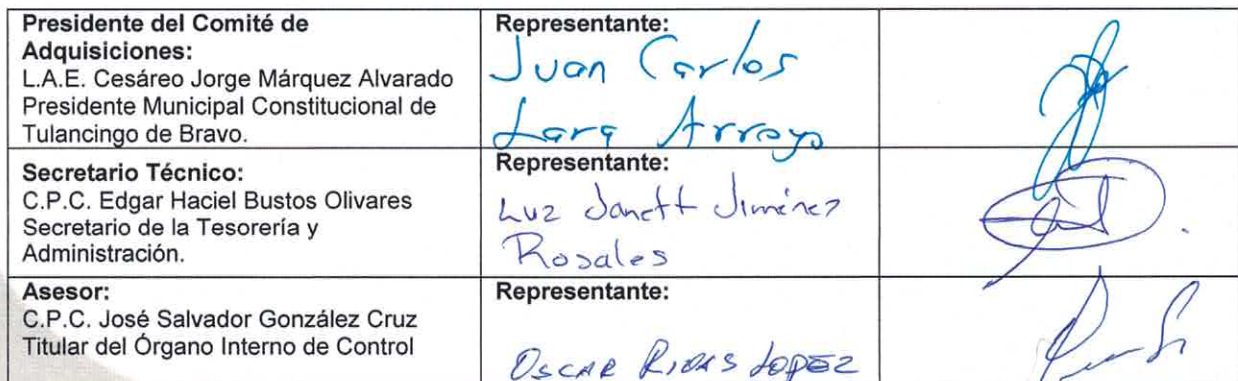 Presidente del Comité de
Adquisiciones:
L.A.E. Cesáreo Jorge Márquez Alvarado
Presidente Municipal Constitucional de
Tulancingo de Bravo.
Representante:
Juan Carlos
Lara Arroyo
Secretario Técnico:
C.P.C. Edgar Haciel Bustos Olivares
Secretario de la Tesorería y
Administración.
Representante:
Luz Janett Jiménez
Rosales
Asesor:
C.P.C. José Salvador González Cruz
Titular del Órgano Interno de Control
Representante:
OSCAR RIVAS LOPEZ